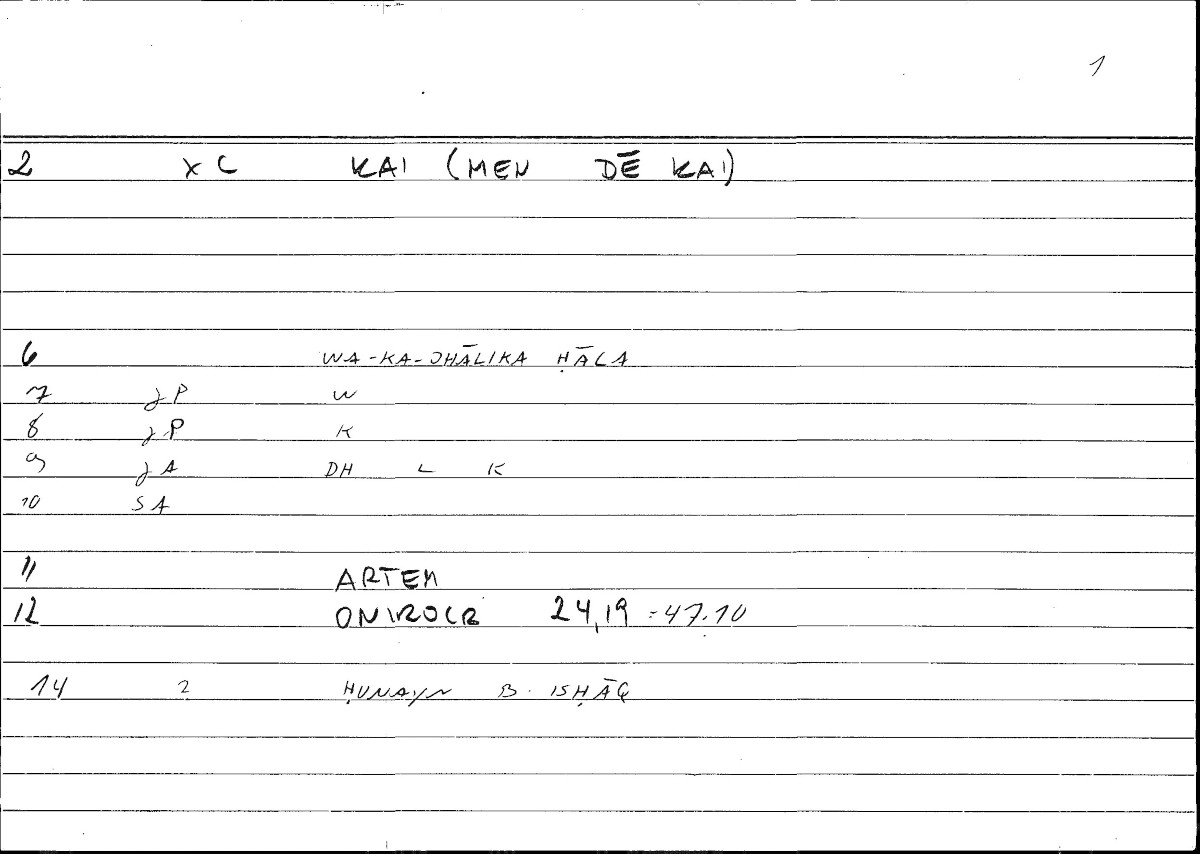 1
2 XC KAI (MEN DĒ KAI)
6 WA-KA-DHĀLIKA ḤĀLA
7 JP W
8 JP K
9 JA DH L K
10 SA
11 ARTEM
12 ONIROCR 24,19 = 47.10
14 2 ḤUNAYN B. ISḤĀQ